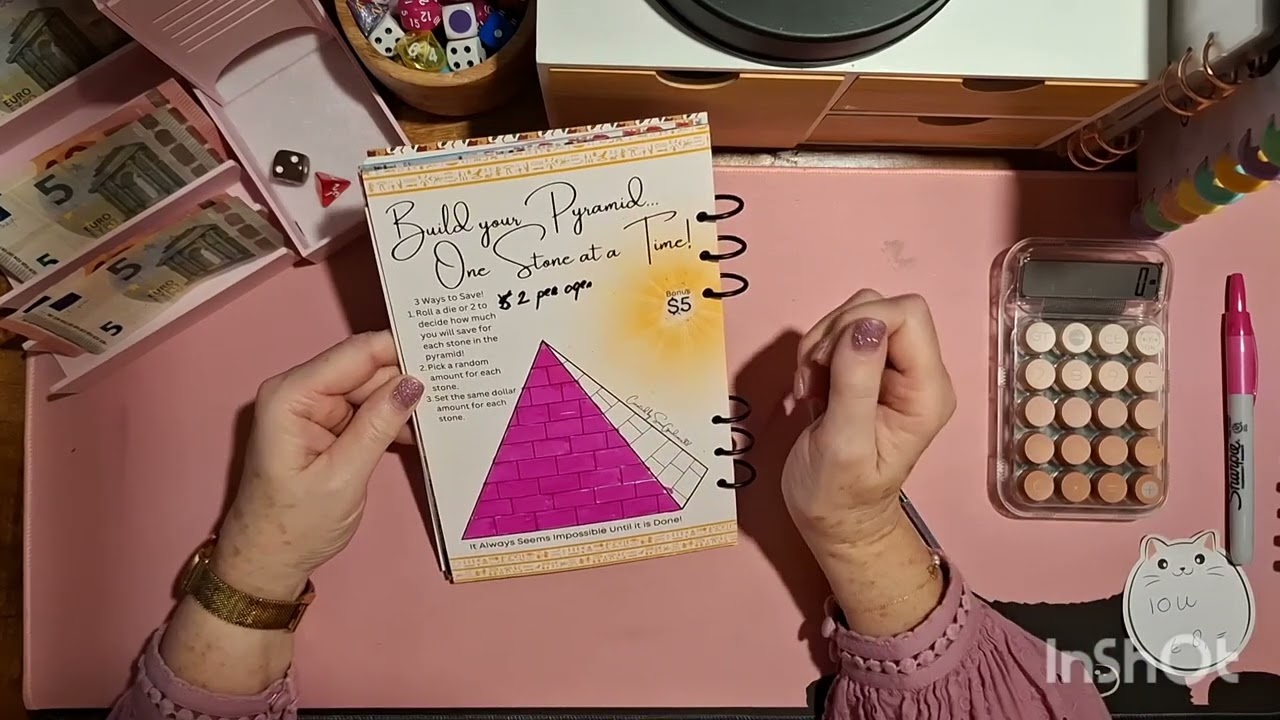 Build your Pyramid...
One Stone at a Time!
3 Ways to Save!
1. Roll a die or 2 to
decide how much
you will save for
each stone in the
pyramid!
2. Pick a random
amount for each
stone.
3. Set the same dollar
amount for each
stone.
$2 per
Bonus
$5
It Always Seems Impossible Until it is Done!
5
EURO
5
5
EURO
5
5
EURO
Sharpie
IOU
InShot